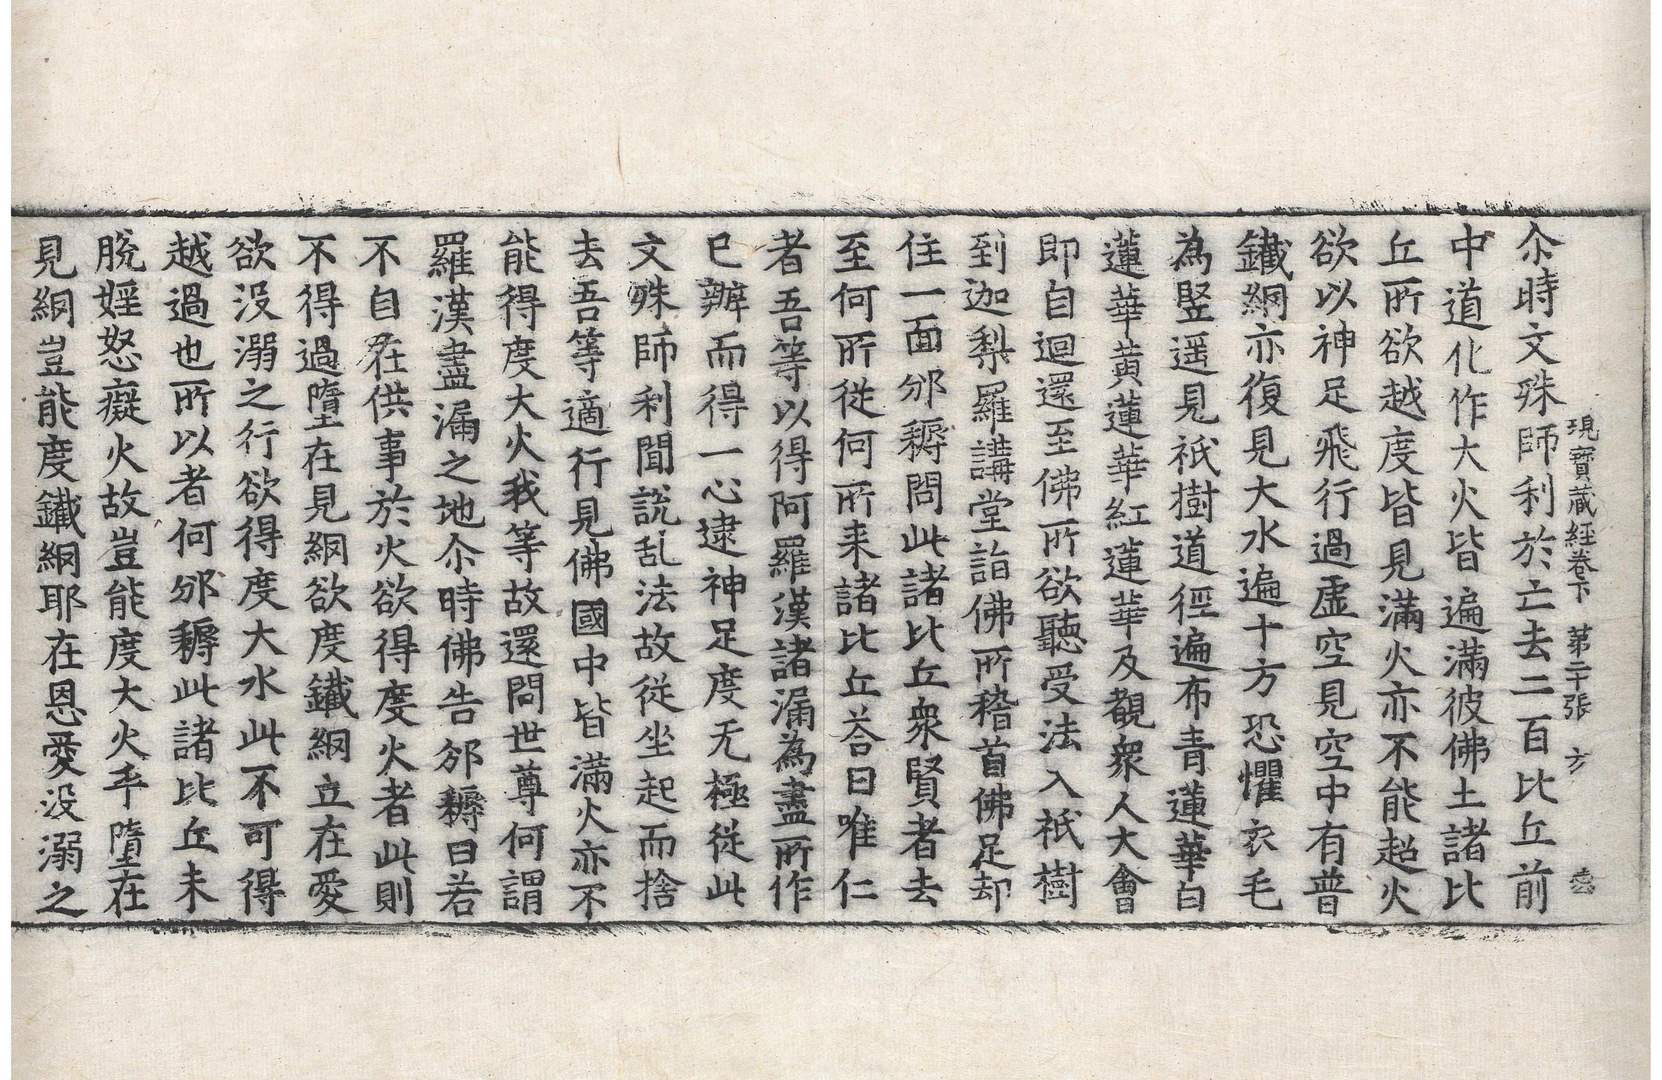 現寳藏經卷下 第二十張 方
尒時文殊師利於亡去二百比丘前
中道化作大火皆遍滿彼佛土諸比
丘所欲越度皆見滿火亦不能超火
欲以神足飛行過虛空見空中有普
鐵網亦復見大水遍十方恐懼衣毛
為竪遥見祇樹道徑遍布青蓮華白
蓮華黄蓮華紅蓮華及覩衆人大會
即自迴還至佛所欲聽受法入祇樹
到迦梨羅講堂詣佛所稽首佛足却
住一面邠耨問此諸比丘衆賢者去
至何所從何所来諸比丘荅曰唯仁
者吾等以得阿羅漢諸漏為盡所作
已辦而得一心逮神足度无極從此
文殊師利聞說乱法故從坐起而捨
去吾等適行見佛國中皆滿火亦不
能得度大火我等故還問世尊何謂
羅漢盡漏之地尒時佛告邠耨曰若
不自在供事於火欲得度火者此則
不得過墮在見網欲度鐵網立在愛
欲没溺之行欲得度大水此不可得
越過也所以者何邠耨此諸比丘未
脫婬怒癡火故豈能度大火乎墮在
見網豈能度鐵網耶在恩愛没溺之